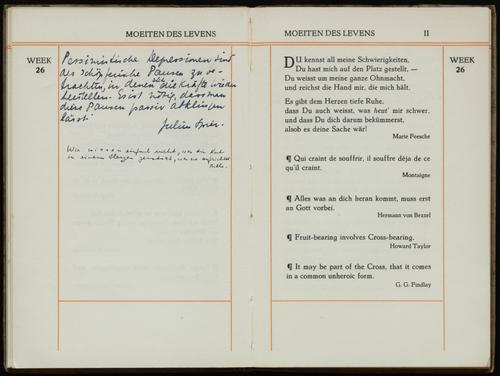 MOEITEN DES LEVENS
WEEK
26
Pessimistische Depressionen sind
als schöpferische Pausen zu be-
trachten, in denen sich die Kräfte wieder
herstellen. Es ist nötig, dass man
diese Pausen passiv abklingen
lässt.
Julius
Wir wissen einfach nicht, was die
in einem Menschen
Rilke.
MOEITEN DES LEVENS II
WEEK
26
DU kennst all meine Schwierigkeiten,
Du hast mich auf den Platz gestellt, —
Du weisst um meine ganze Ohnmacht,
und reichst die Hand mir, die mich hält.
Es gibt dem Herzen tiefe Ruhe,
dass Du auch weisst, was heut' mir schwer,
und dass Du dich darum bekümmerst,
alsob es deine Sache wär!
Marie Feesche
¶ Qui craint de souffrir, il souffre déja de ce
qu'il craint.
Montaigne
¶ Alles was an dich heran kommt, muss erst
an Gott vorbei.
Hermann von Bezzel
¶ Fruit-bearing involves Cross-bearing.
Howard Taylor
¶ It may be part of the Cross, that it comes
in a common unheroic form.
G. G. Findlay